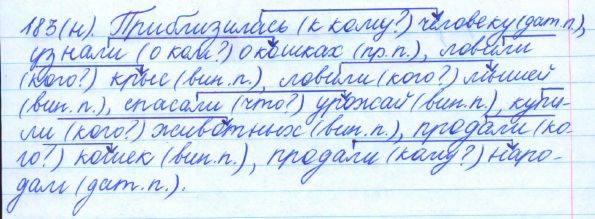 183(н). Приблизилась (к кому?) человеку (дат.п.),
узнали (о ком?) о кошках (пр.п.), ловили
(кого?) крыс (вин.п.), ловили (кого?) мышей
(вин.п.), спасали (что?) урожай (вин.п.), купи-
ли (кого?) животных (вин.п.), продали (ко-
го?) кошек (вин.п.), продали (кому?) наро-
дам (дат.п.).